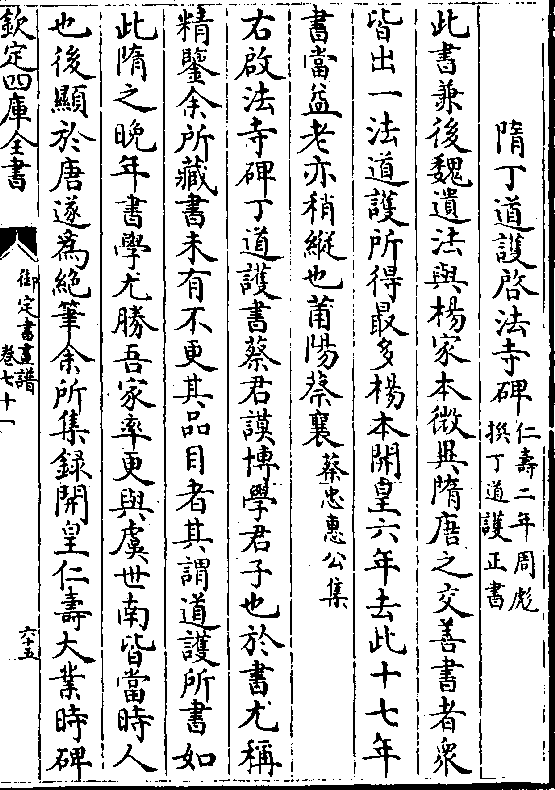 隋丁道護啓法寺碑仁壽二年周彪
撰丁道護正書
此書兼後魏遺法與楊家本微異隋唐之交善書者衆
皆出一法道護所得最多楊本開皇六年去此十七年
書當益老亦稍縱也莆陽蔡襄蔡忠惠公集
右啟法寺碑丁道護書蔡君謨博學君子也於書尤稱
精鑒余所藏書未有不更其品目者其謂道護所書如
此隋之晚年書學尤勝吾家率更與虞世南皆當時人
也後顯於唐遂為絶筆余所集録開皇仁壽大業時碑
欽定四庫全書
御定書畫譜
卷七十一
六十五